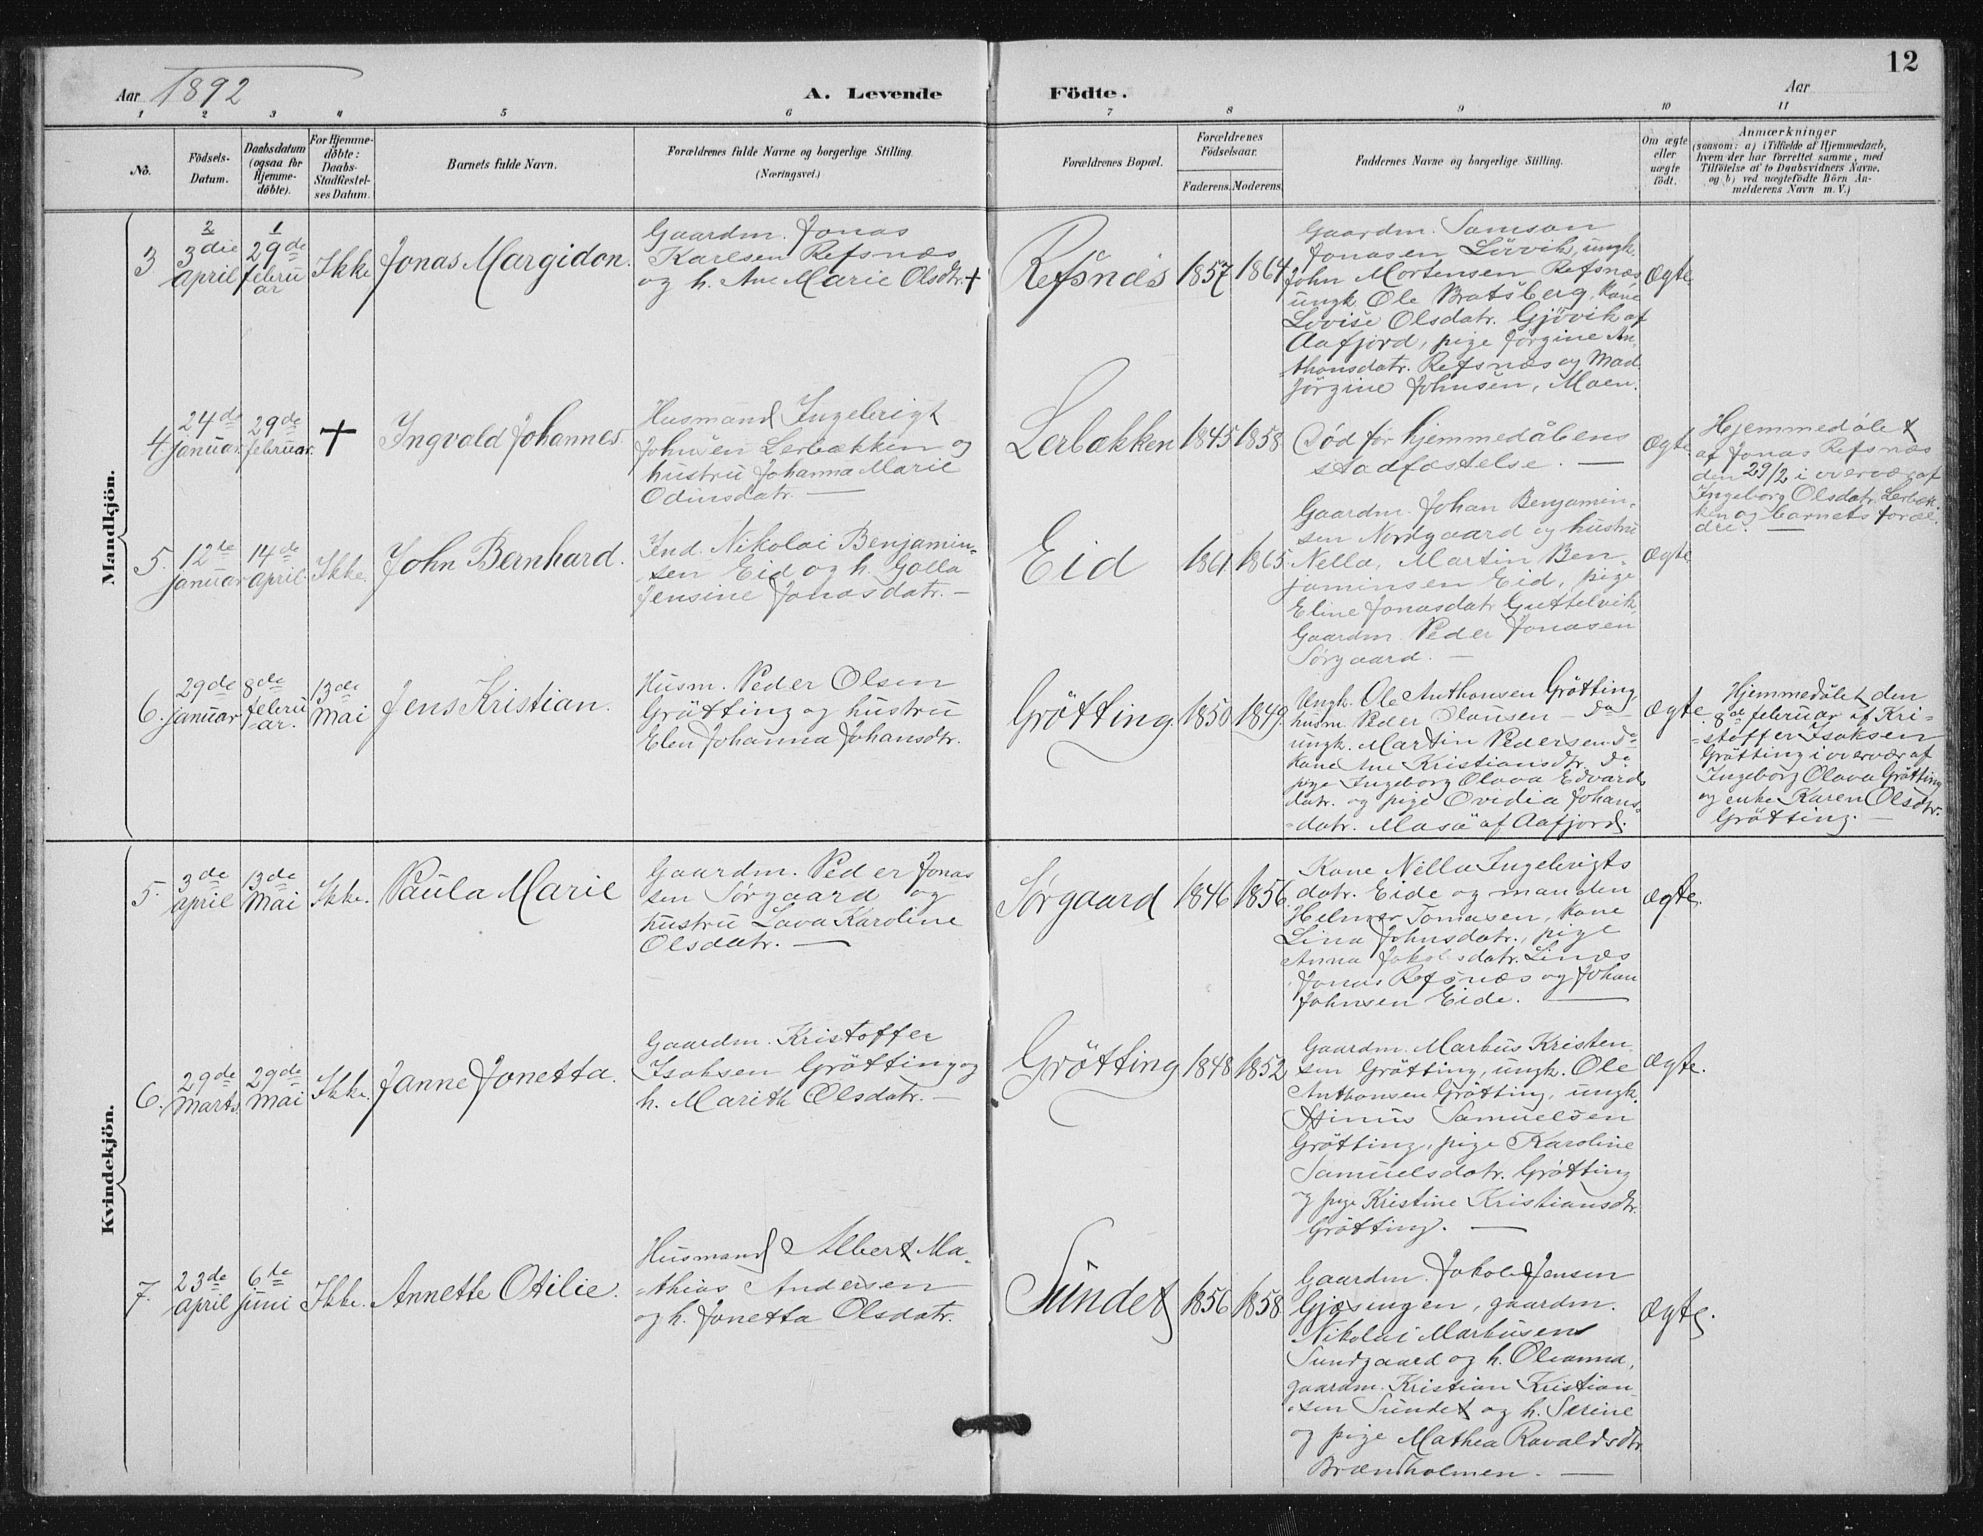 12
Aar 1892
A. Levende Födte.
Aar
1 2 3 4 5 6 7 8 9 10 11
No.
Födsels-
Datum.
Daabsdatum
(ogsaa for
Hjemme-
döbte).
For Hjemme-
döbte:
Daabs-
Stadfæstel-
ses Datum.
Barnets fulde Navn.
Forældrenes fulde Navne og borgerlige Stilling.
(Næringsvei.)
Forældrenes Bopæl.
Forældrenes
Födselsaar.
Faderens. Moderens.
Faddernes Navne og borgerlige Stilling.
Om ægte
eller
uægte
födt.
Anmærkninger
(saasom: a) i Tilfælde af Hjemmedaab,
hvem der har forrettet samme, med
Tilföielse af to Daabsvidners Navne,
og b) ved uægtefödte Börn An-
melderens Navn m. V.)
Mandkjön.
3
2
3die
April
1
29de
februar
Ikke
Jonas Margidon.
Gaardm. Jonas
Karlsen Refsnæs
og h. Ane Marie Olsdtr. +
Refsnæs
1857
1864
Gaardm. Samson
Jonasen Lövvik, ungk.
John Mortensen Refsnæs
ungk. Ole Bratsberg, kone
Lovise Olsdatr. Gjövik af
Aafjord, pige Jörgine An-
thonsdatr. Refsnæs og Mad.
Jörgine Johnsen, Moen.
ægte
4
24de
januar
29de
februar.
+
Ingvald Johannes.
Husmand Ingebrigt
Johnsen Lerbækken og
hustru Johanna Marie
Odinsdatr. —
Lerbækken
1845
1858
Död för hjemmedåbens
stadfæstelse. —
ægte
Hjemmedöbt
af Jonas Refsnæs
den 29/2 i overvær af
Ingeborg Olsdatr. Lerbæk-
ken og barnets foræl-
dre. —
5.
12te
januar
14de
April
Ikke.
John Bernhard.
Ind. Nikolai Benjamin-
sen Eid og h. Golla
Jensine Jonasdatr. —
Eid
1861
1865
Gaardm. Johan Benjamin-
sen Nordgaard og hustru
Nella, Martin Ben-
jaminsen Eid, pige
Eline Jonasdatr. Guttelvik
Gaardm. Peder Jonasen
Sörgaard. —
ægte
6.
29de
januar
8de
februar.
13de
Mai
Jens Kristian.
Husm. Peder Olsen
Grötting og hustru
Elen Johanna Johansdtr.
Grötting.
1850
1849
Ungk. Ole Anthonsen Grötting
husm. Peder Olausen — Do
ungk. Martin Pedersen Do
kone Ane Kristiansdtr. Do
pige Ingeborg Olava Edvards
datr. og pige Ovidia Johans-
datr. Masö af Aafjord.
ægte
Hjemmedöbt den
8de februar af Kri-
stoffer Isaksen
Grötting i overvær af
Ingeborg Olava Grötting
og enke Karen Olsdtr.
Grötting. —
Kvindekjön.
5.
3de
April
13de
Mai
Ikke.
Paula Marie
Gaardm. Peder Jonas
sen Sörgaard og
hustru Lava Karoline
Olsdatr. —
Sörgaard
1846
1856.
Kone Nella Ingebrigts
datr. Eide og manden
Helmer Tomasen, kone
Lina Johnsdatr., pige
Anna Jakobsdatr. Linæs
Jonas Refsnæs og Johan
Johnsen Eide. —
ægte.
6.
29de
Marts
29de
Mai
Ikke.
Janne Jonetta.
Gaardm. Kristoffer
Isaksen Grötting og
h. Marith Olsdatr. —
Grötting
1848
1852
Gaardm. Markus Kristen-
sen Grötting, ungk. Ole
Anthonsen Grötting, ungk.
Hinus Samuelsen
Grötting, pige Karoline
Samuelsdatr. Grötting
og pige Kristine Kristiansdtr.
Grötting. —
ægte.
7.
23de
April
6te
juni
Ikke.
Annette Otilie.
Husmand Albert Ma-
thias Andersen
og h. Jonetta Olsdatr.
Sundet
1856
1858
Gaardm. Jakob Jensen
Gjæsingen, gaardm.
Nikolai Markusens
Sundgaard og h. Oleanna,
gaardm. Kristian Kristian-
sen Sundet og h. Serine
og pige Mathea Ravaldsdtr.
Brændholmen. —
ægte.